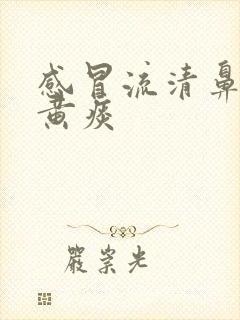 感冒流清鼻
黄痰
严崇光